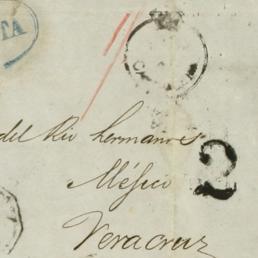 TA
del Rio hermanos
Méjico
Veracruz
2